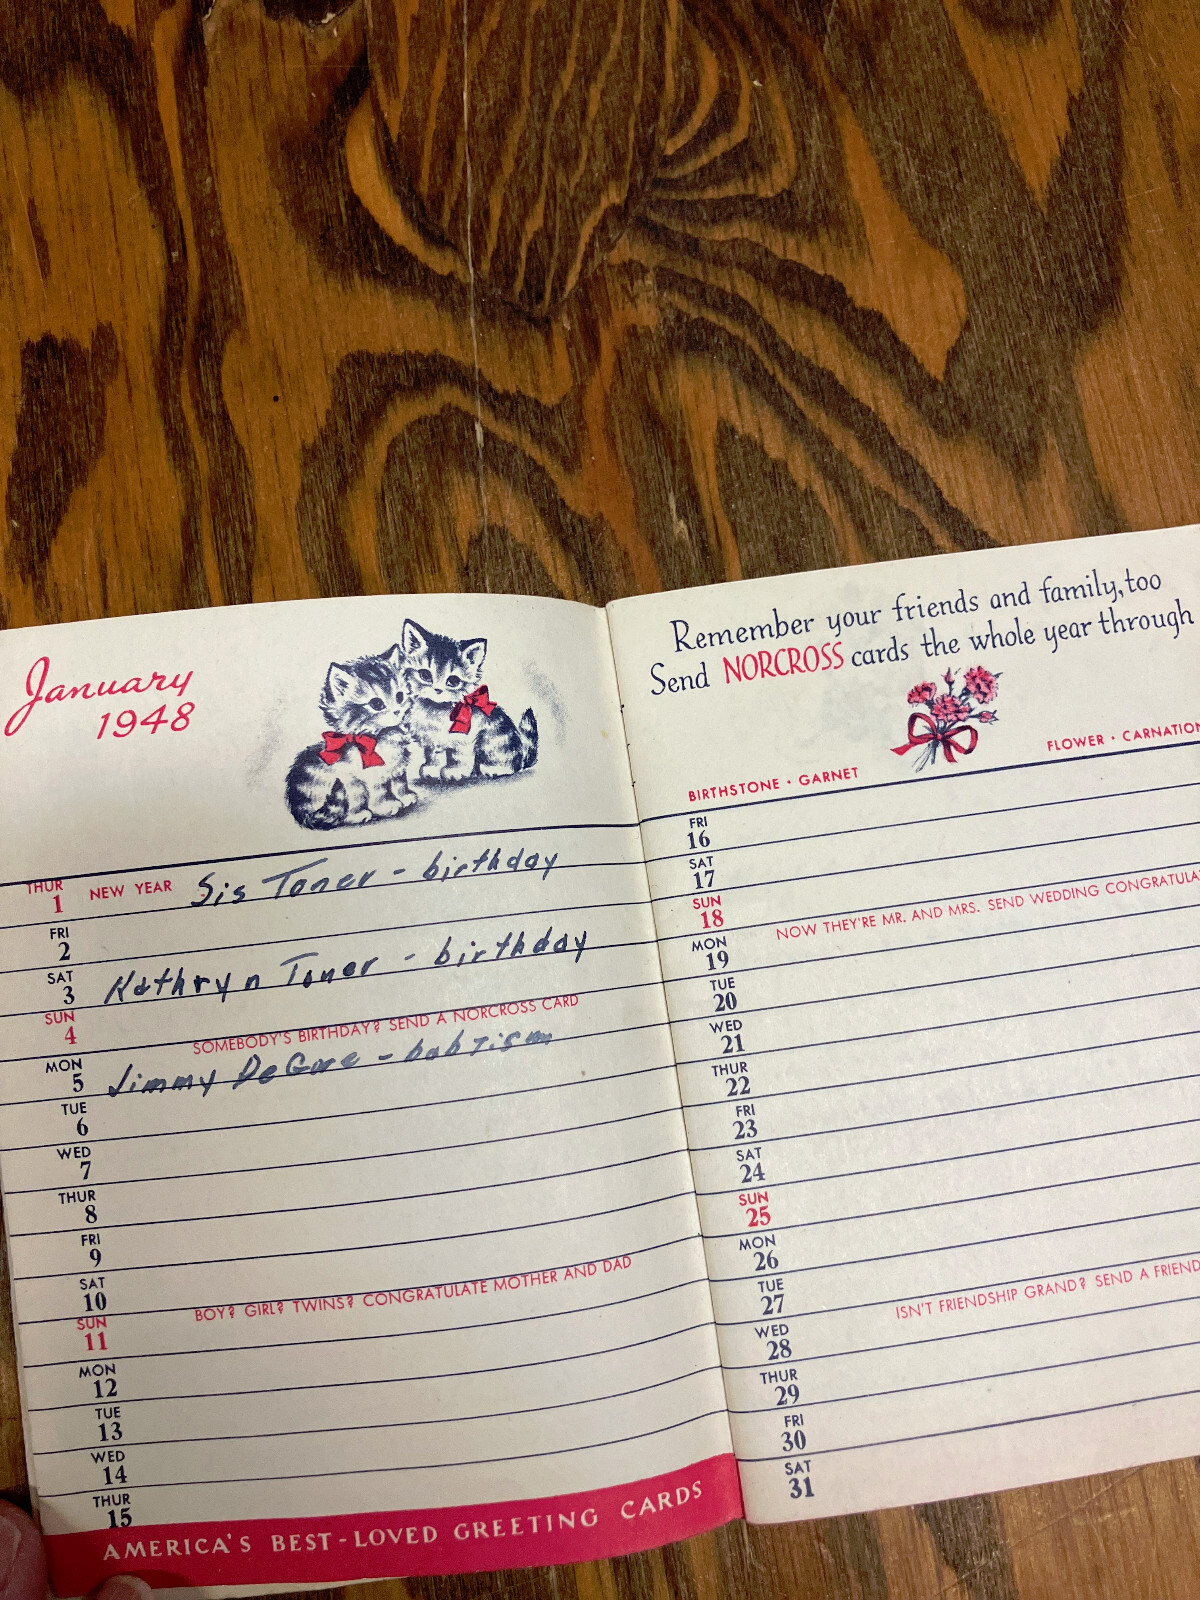 January
1948
THUR
1 NEW YEAR Sis Toner - birthday
FRI
2
SAT
3 Kathryn Toner - birthday
SUN
4 SOMEBODY'S BIRTHDAY? SEND A NORCROSS CARD
MON
5 Jimmy DeGore - babtism
TUE
6
WED
7
THUR
8
FRI
9
SAT
10
BOY? GIRL? TWINS? CONGRATULATE MOTHER AND DAD
SUN
11
MON
12
TUE
13
WED
14
THUR
15
AMERICA'S BEST-LOVED GREETING CARDS
Remember your friends and family, too
Send NORCROSS cards the whole year through
BIRTHSTONE · GARNET
FLOWER · CARNATION
FRI
16
SAT
17
SUN
18 NOW THEY'RE MR. AND MRS. SEND WEDDING CONGRATULA
MON
19
TUE
20
WED
21
THUR
22
FRI
23
SAT
24
SUN
25
MON
26
TUE
27 ISN'T FRIENDSHIP GRAND? SEND A FRIEND
WED
28
THUR
29
FRI
30
SAT
31